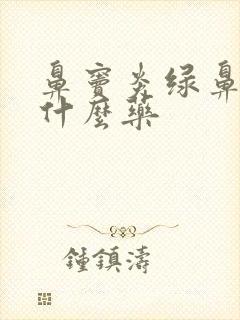 鼻竇炎绿鼻
什麼藥
鍾鎮濤